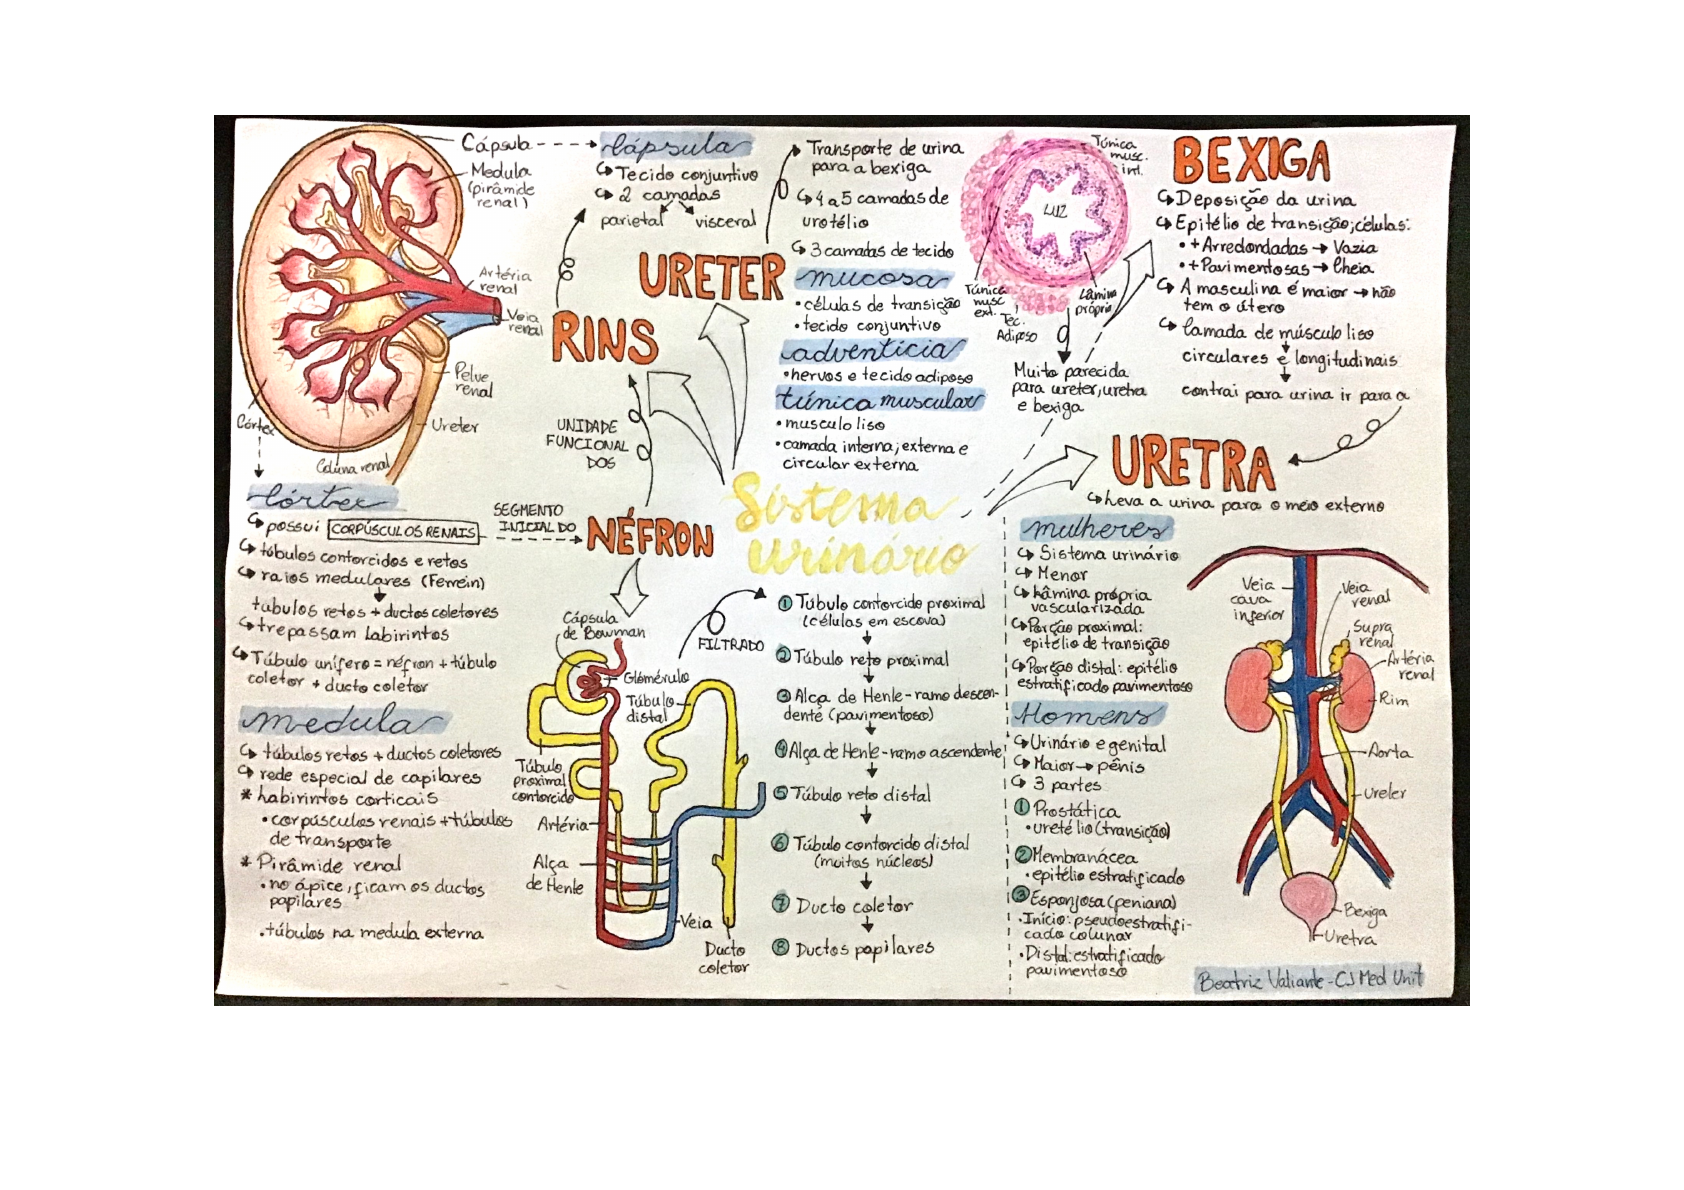 Sistema
urinário
RINS
Cápsula
Medula
(pirâmide
renal)
Artéria
renal
Veia
renal
Pelve
renal
Ureter
Coluna renal
Córtex
Cápsula
Tecido conjuntivo
2 camadas
parietal visceral
Córtex
possui CORPÚSCULOS RENAIS
túbulos contorcidos e retos
raios medulares (Ferrein)
tubulos retos + ductos coletores
trepassam labirintos
Túbulo unífero = néfron + túbulo
coletor + ducto coletor
medula
túbulos retos + ductos coletores
rede especial de capilares
* labirintos corticais
• corpúsculos renais + túbulos
de transporte
* Pirâmide renal
• no ápice, ficam os ductos
papilares
• túbulos na medula externa
UNIDADE
FUNCIONAL
DOS
SEGMENTO
INICIAL DO
NÉFRON
Cápsula
de Bowman
Glomérulo
Túbulo
distal
Túbulo
proximal
contorcido
Artéria
Alça
de Henle
Veia
Ducto
coletor
FILTRADO
1 Túbulo contorcido proximal
(células em escova)
2 Túbulo reto proximal
3 Alça de Henle - ramo descen-
dente (pavimentoso)
4 Alça de Henle - ramo ascendente
5 Túbulo reto distal
6 Túbulo contorcido distal
(muitos núcleos)
7 Ducto coletor
8 Ductos papilares
URETER
Transporte de urina
para a bexiga
4 a 5 camadas de
urotélio
3 camadas de tecido
mucosa
• células de transição
• tecido conjuntivo
adventícia
• nervos e tecido adiposo
túnica muscular
• musculo liso
• camada interna, externa e
circular externa
Túnica
musc.
int.
LUZ
Túnica
musc
ext.
Tec.
Adiposo
Lâmina
própria
Muito parecida
para ureter, uretra
e bexiga
BEXIGA
Deposição da urina
Epitélio de transição; células:
• + Arredondadas → Vazia
• + Pavimentosas → Cheia
A masculina é maior → não
tem o útero
Camada de músculo liso
circulares e longitudinais
contrai para urina ir para a
URETRA
Leva a urina para o meio externo
mulheres
Sistema urinário
Menor
Lâmina própria
vascularizada
Porção proximal:
epitélio de transição
Porção distal: epitélio
estratificado pavimentoso
Homens
Urinário e genital
Maior → pênis
3 partes
1 Prostática
• uretélio (transição)
2 Membranácea
• epitélio estratificado
3 Esponjosa (peniana)
• Início: pseudoestratifi-
cado colunar
• Distal: estratificado
pavimentoso
Veia
cava
inferior
Veia
renal
Supra
renal
Artéria
renal
Rim
Aorta
Ureter
Bexiga
Uretra
Beatriz Valiante - CJ Med Unit